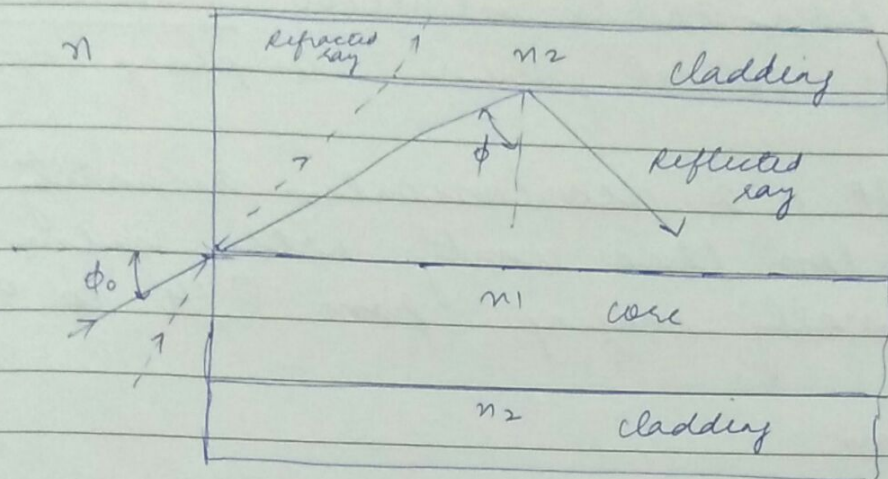 n
Refracted
ray
n2 cladding
ϕ
Reflected
ray
ϕ0
n1 core
n2 cladding